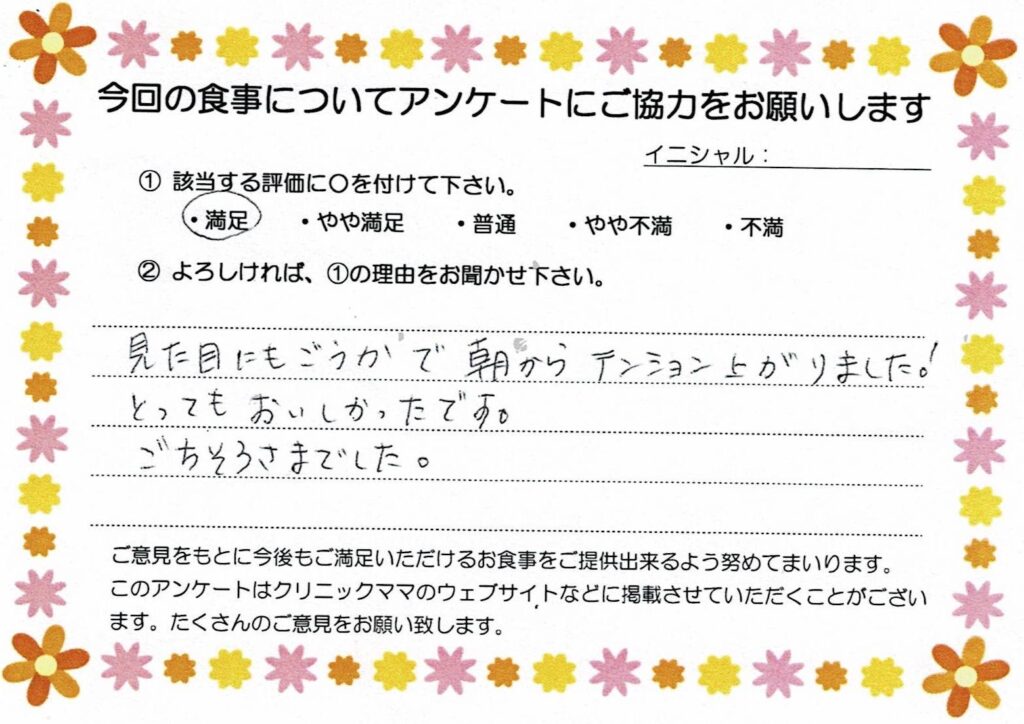 今回の食事についてアンケートにご協力をお願いします
イニシャル：
① 該当する評価に〇を付けて下さい。
・満足 ・やや満足 ・普通 ・やや不満 ・不満
② よろしければ、①の理由をお聞かせ下さい。
見た目にもごうかで朝からテンション上がりました!
とってもおいしかったです。
ごちそうさまでした。
ご意見をもとに今後もご満足いただけるお食事をご提供出来るよう努めてまいります。
このアンケートはクリニックママのウェブサイトなどに掲載させていただくことがござい
ます。たくさんのご意見をお願い致します。